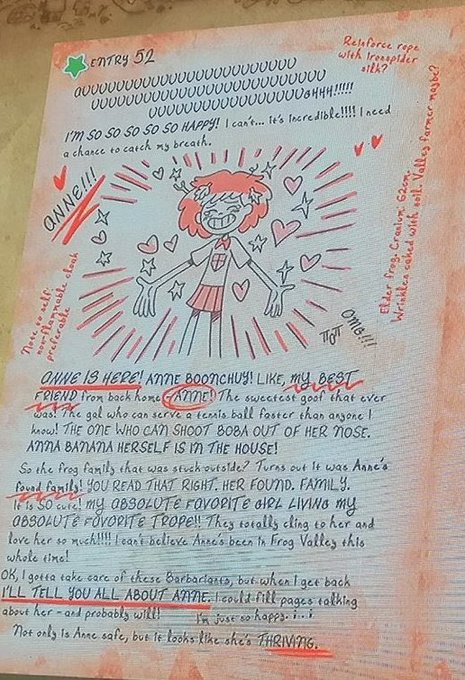 ENTRY 52
OUUUUUUUUUUUUUUUUUUUUUUUU
UUUUUUUUUUUUUUUUUUUUUUUUU
UUUUUUUUUUUUUUUUUUUGHHH!!!!!
I'M SO SO SO SO SO HAPPY! I can't... it's incredible!!!! I need
a chance to catch my breath.
Reinforce rope
with ironspider
silk?
ANNE!!!
Elder frog. Cranium: 62cm.
Wrinkles caked with soil. Valley farmer maybe?
Note to self:
non-flammable cloak
preferable
OMG!!!!
ANNE IS HERE! ANNE BOONCHUY! LIKE, MY BEST
FRIEND from back home - ANNE! The sweetest goof that ever
was! The gal who can serve a tennis ball faster than anyone I
know! THE ONE WHO CAN SHOOT BOBA OUT OF HER NOSE.
ANNA BANANA HERSELF IS IN THE HOUSE!
So the frog family that was stuck outside? Turns out it was Anne's
found family! YOU READ THAT RIGHT. HER FOUND. FAMILY.
It is SO cute! MY ABSOLUTE FAVORITE GIRL LIVING MY
ABSOLUTE FAVORITE TROPE!! They totally cling to her and
love her so much!!!! I can't believe Anne's been in Frog Valley this
whole time!
OK, I gotta take care of these Barbariants, but when I get back
I'LL TELL YOU ALL ABOUT ANNE. I could fill pages talking
about her - and probably will! I'm just so happy. i...i
Not only is Anne safe, but it looks like she's THRIVING.